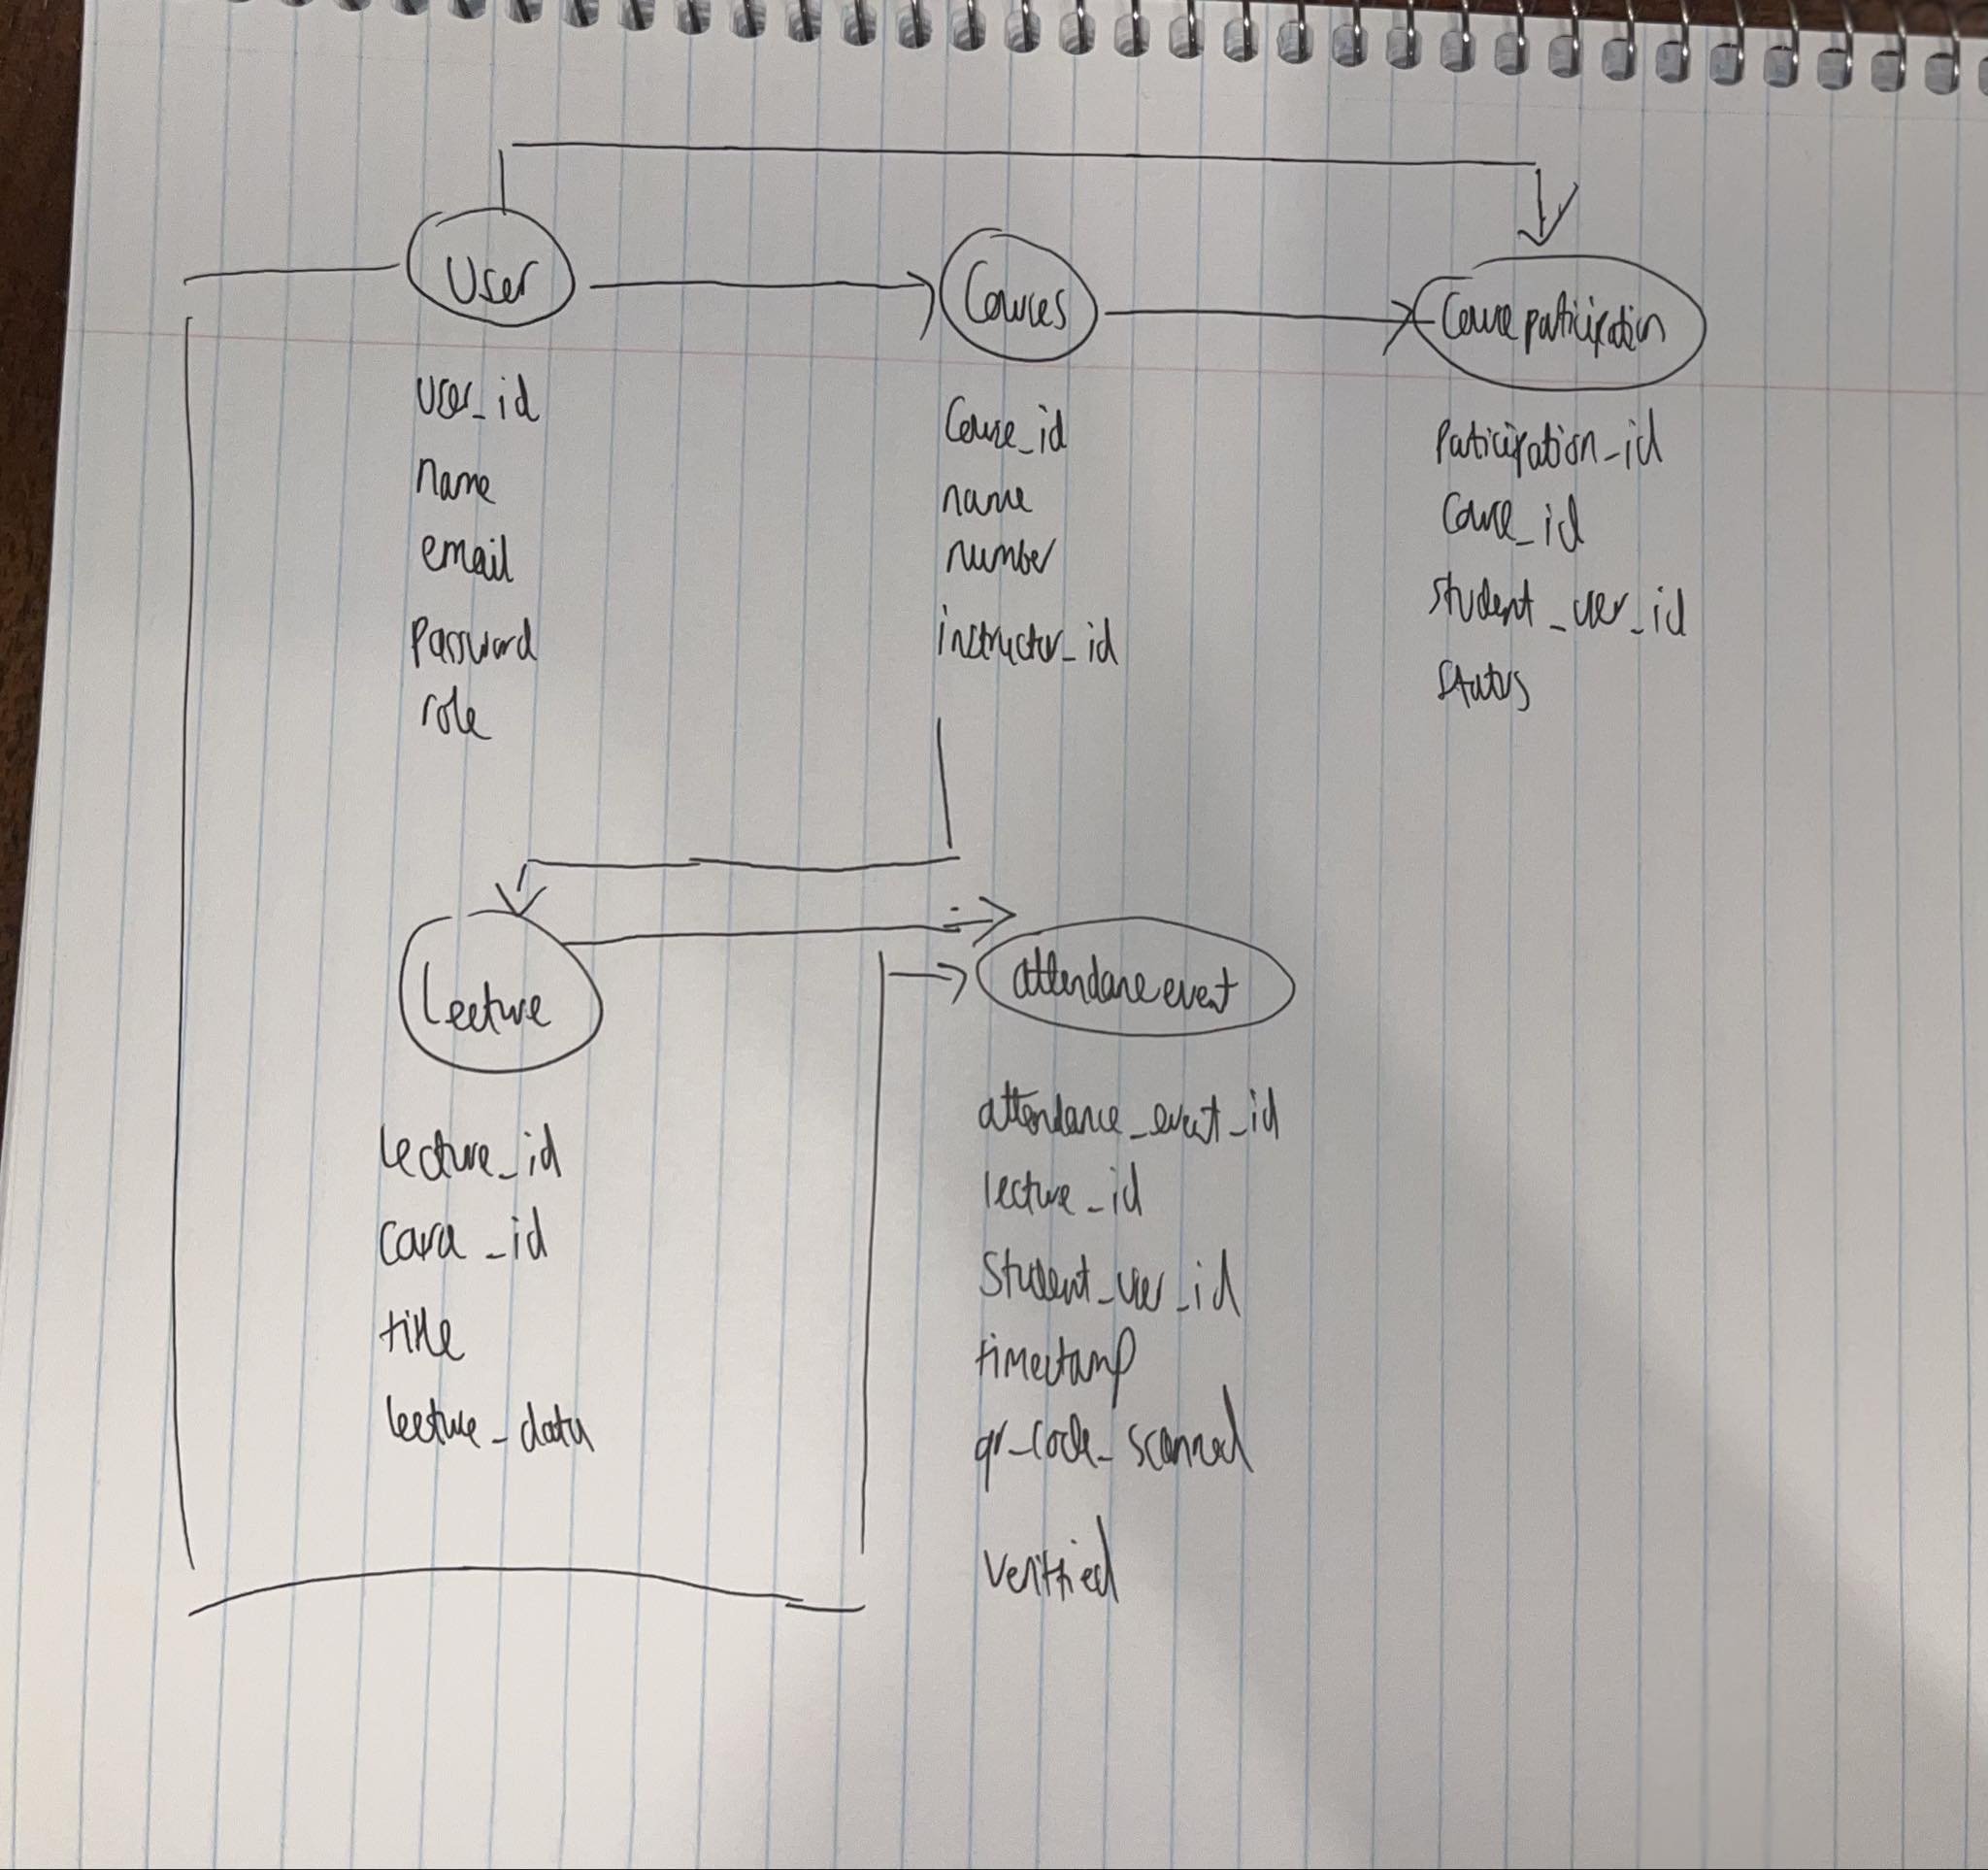 User
user_id
name
email
password
role
Courses
Course_id
name
number
instructor_id
Course participation
Participation_id
Course_id
student_user_id
status
Lecture
lecture_id
course_id
title
lecture_data
attendance event
attendance_event_id
lecture_id
Student_user_id
timestamp
qr_code_scanned
Verified